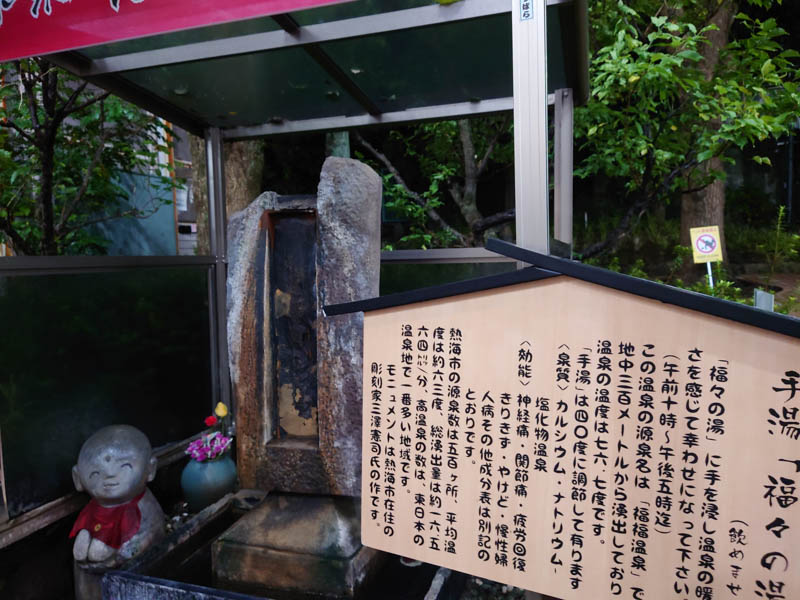 ばら
手湯「福々の湯
(飲めませ
「福々の湯」に手を浸し温泉の暖
さを感じて幸わせになって下さい。
(午前十時〜午後五時迄)
この温泉の源泉名は「福福温泉」で
地中三百メートルから湧出しており
温泉の温度は七六、七度です。
「手湯」は四〇度に調節して有ります
〈泉質〉カルシウム・ナトリウム-
塩化物温泉
〈効能〉神経痛・関節痛・疲労回復
きりきず・やけど・慢性婦
人病その他成分表は別記の
とおりです。
熱海市の源泉数は五百ヶ所、平均温
度は約六三度、総湧出量は約一六、五
六四㍑/分、高温泉の数は、東日本の
温泉地で一番多い地域です。
モニュメントは熱海市在住の
彫刻家三澤憲司氏の作です。